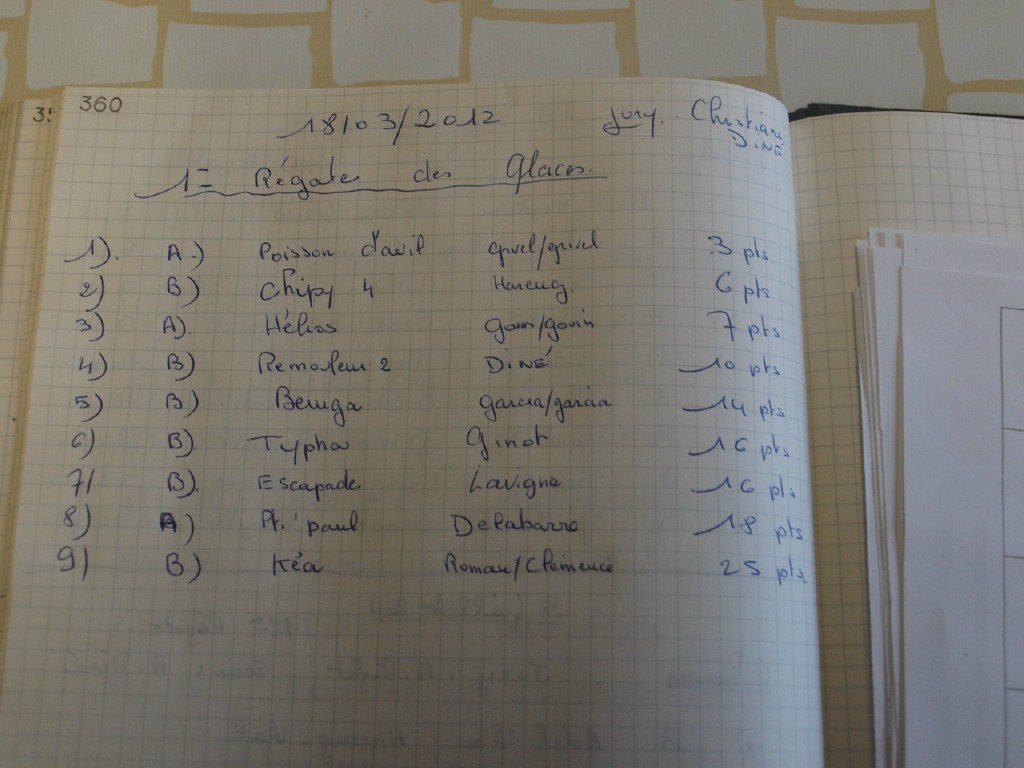 360
18/03/2012 Jury. Christian
DINÉ
1= Régate des Glaces.
1). A.) Poisson d'avril 3 pts.
2) B) Chipy 4 Hareng. 6 pts
3) A). Hélios 7 pts
4) B) Remoleur 2 DINÉ 10 pts
5) B) Beruga garcia/garcia 14 pts
6) B) Typha Ginot 16 pts
7/ B). Escapade Lavigne 16 pts
8) A) Pt.' paul Delabarre 18 pts
9) B) Kéa Roman/Clémence 25 pts